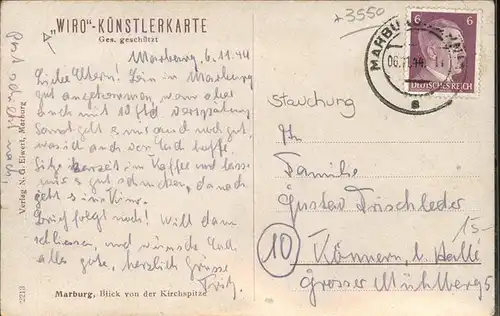 "WIRO"-KÜNSTLERKARTE
Ges. geschützt
+3550
Marburg, 6.11.44
Liebe Eltern! Bin in Marburg
gut angekommen, wenn aber
auch mit 10 Std Verspätung
Sonst geht's mir auch noch gut,
was ich auch von Euch hoffe.
Sitze derzeit im Kaffee und lasse
mir's gut schmecken, danach
geht's ins Kino.
Brief folgt noch! Will dann
schliessen, und wünsche Euch
alles gute, herzlich Grüsse
Fritz.
Verlag N. G. Elwert, Marburg
2213
Marburg, Blick von der Kirchspitze
6 6
MARBURG
06.11.44
DEUTSCHES REICH
a
Stauchung
An
Familie
Gustav Frischleder
15-
10
Könnern, b. Halle
Grosser Mühlberg 5